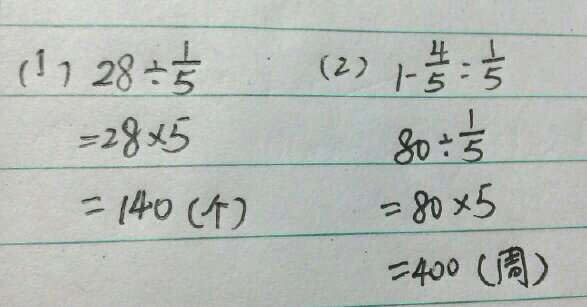 (1) 28÷1/5
=28×5
=140(个)
(2) 1-4/5=1/5
80÷1/5
=80×5
=400(周)